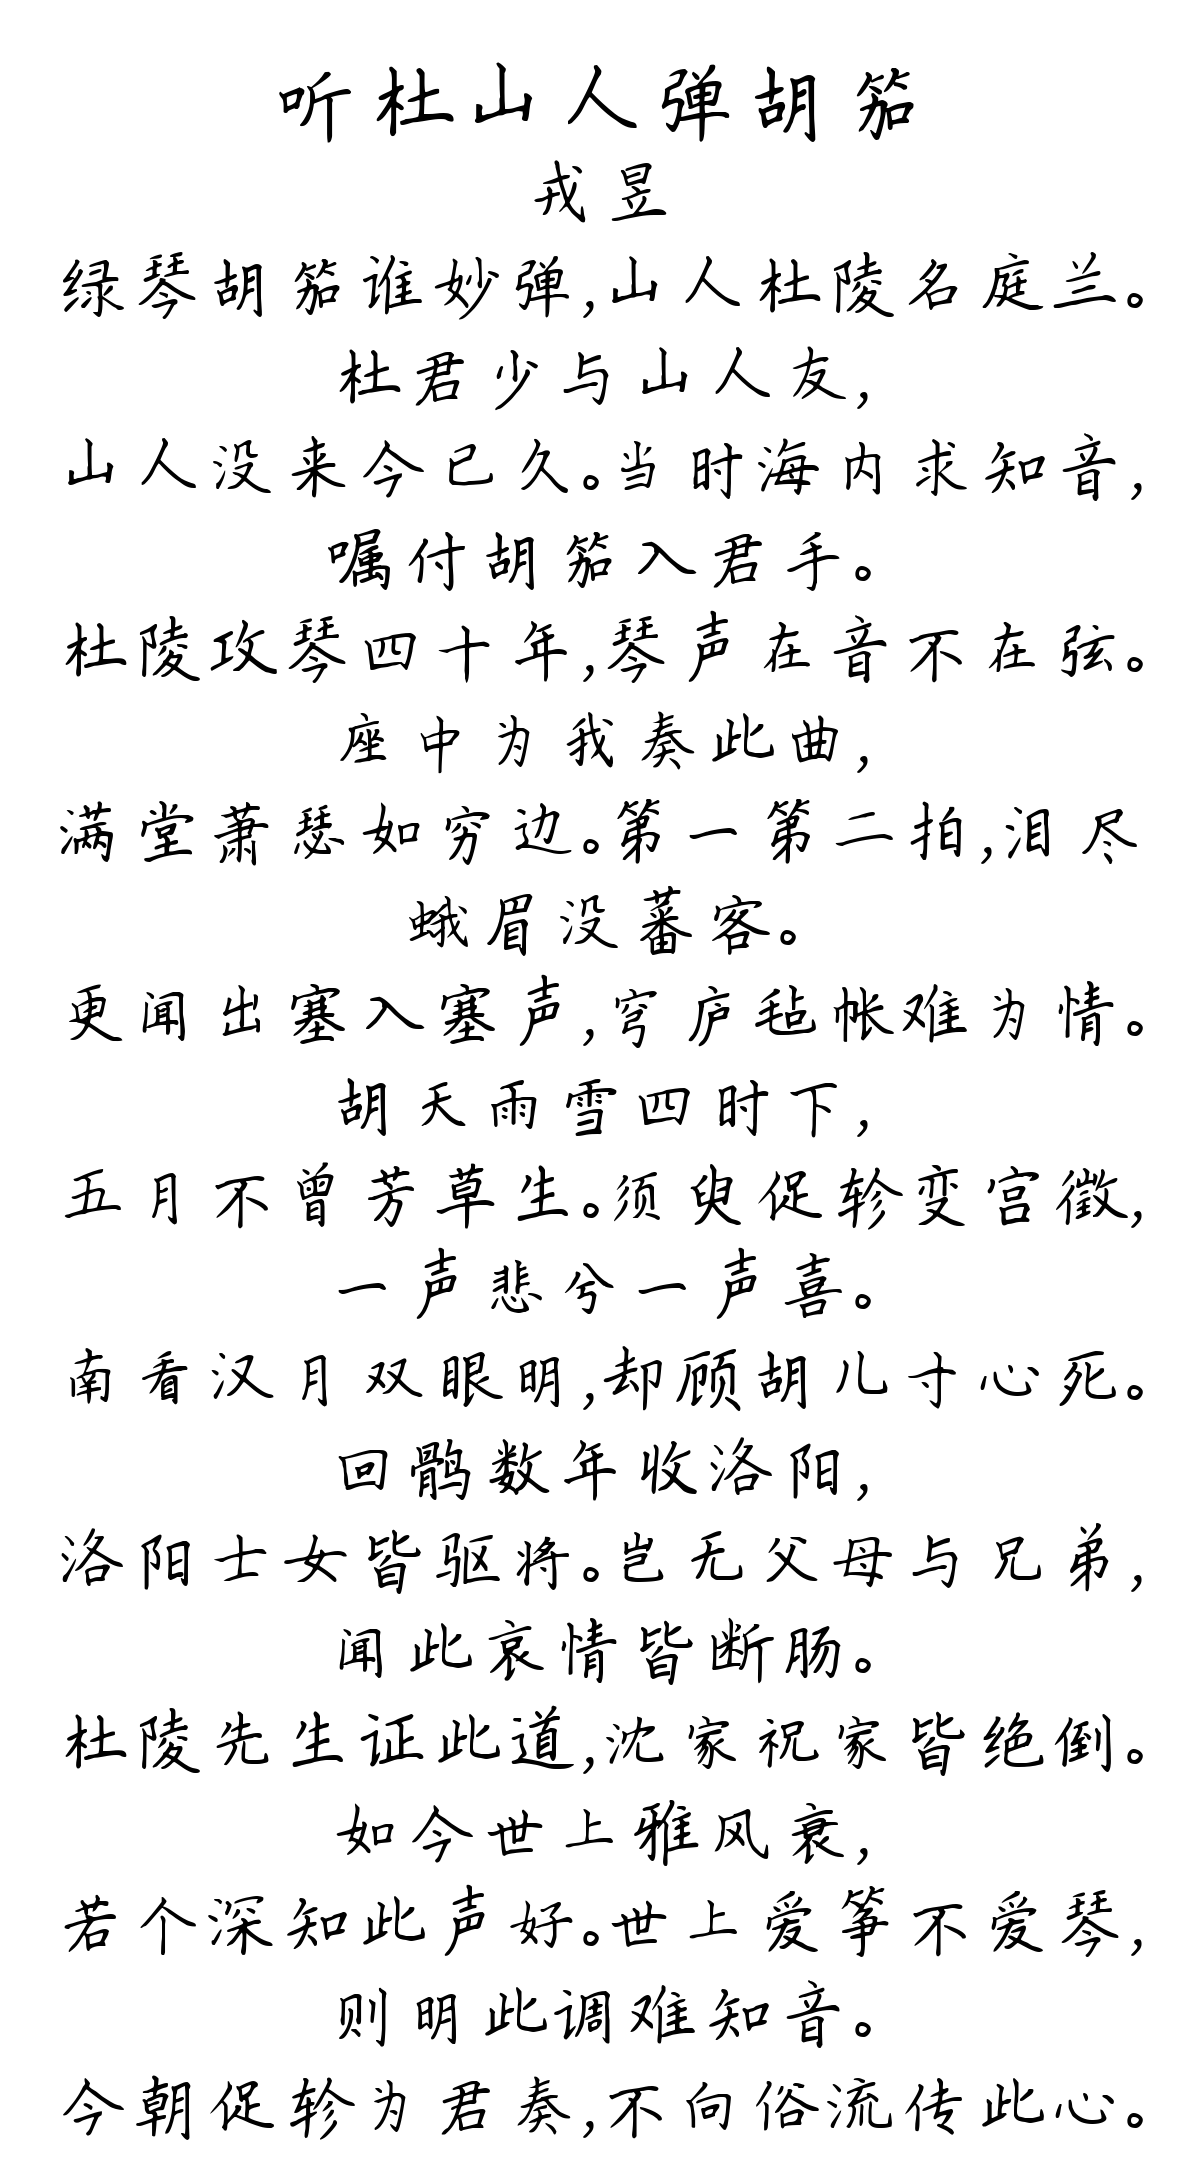 听杜山人弹胡笳
戎昱
绿琴胡笳谁妙弹,山人杜陵名庭兰。
杜君少与山人友,
山人没来今已久。当时海内求知音,
嘱付胡笳入君手。
杜陵攻琴四十年,琴声在音不在弦。
座中为我奏此曲,
满堂萧瑟如穷边。第一第二拍,泪尽
蛾眉没蕃客。
更闻出塞入塞声,穹庐毡帐难为情。
胡天雨雪四时下,
五月不曾芳草生。须臾促轸变宫徵,
一声悲兮一声喜。
南看汉月双眼明,却顾胡儿寸心死。
回鹘数年收洛阳,
洛阳士女皆驱将。岂无父母与兄弟,
闻此哀情皆断肠。
杜陵先生证此道,沈家祝家皆绝倒。
如今世上雅风衰,
若个深知此声好。世上爱筝不爱琴,
则明此调难知音。
今朝促轸为君奏,不向俗流传此心。